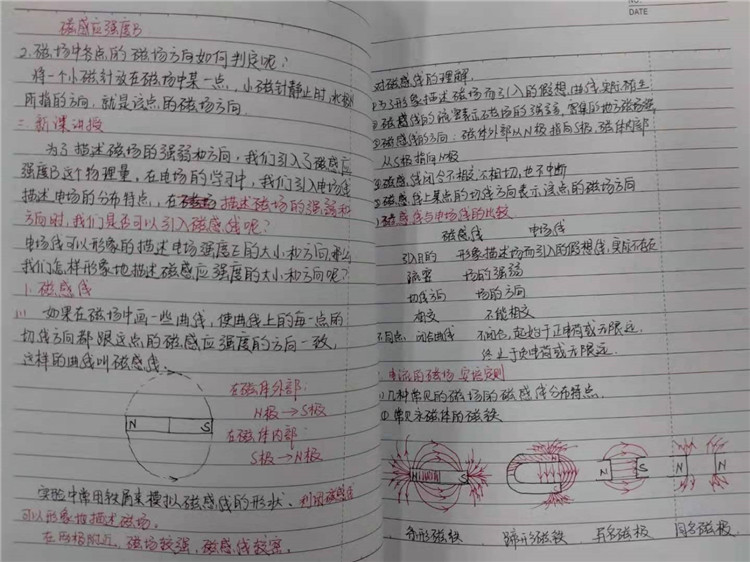 磁感应强度B
2.磁场中各点的磁场方向如何判定呢?
将一个小磁针放在磁场中某一点,小磁针静止时,北极
所指的方向,就是该点的磁场方向.
二.新课讲授
为了描述磁场的强弱和方向,我们引入了磁感应
强度B这个物理量,在电场的学习中,我们引入电场线
描述电场的分布特点,在描述磁场的强弱和
方向时,我们是否可以引入磁感线呢?
电场线可以形象的描述电场强度E的大小和方向,那么
我们怎样形象地描述磁感应强度的大小和方向呢?
1.磁感线
(1) 如果在磁场中画一些曲线,使曲线上的每一点的
切线方向都跟这点的磁感应强度的方向一致,
这样的曲线叫磁感线.
在磁体外部:
N极→S极
N S
在磁体内部:
S极→N极
实验中常用铁屑来模拟磁感线的形状、利用磁感线
可以形象地描述磁场.
在两极附近,磁场较强,磁感线较密.
NO.
DATE
对磁感线的理解.
形象描述磁场而引入的假想曲线,实际
磁感线的疏密表示磁场的强弱,密集的地方磁场强
磁感线的方向:磁体外部从N极指向S极,磁体内部
从S极指向N极
磁感线闭合不相交不相切,也不中断
磁感线上某点的切线方向表示该点的磁场方向
磁感线与电场线的比较
磁感线 电场线
引入目的 形象描述场而引入的假想线,实际不存在
疏密 场的强弱
切线方向 场的方向
相交 不能相交
不同点 闭合曲线 不闭合,起始于正电荷或无限远
终止于负电荷或无限远.
电流的磁场 安培定则
几种常见的磁场的磁感线分布特点.
① 常见永磁体的磁铁
N S N S N N
条形磁铁 蹄形磁铁 异名磁极 同名磁极.